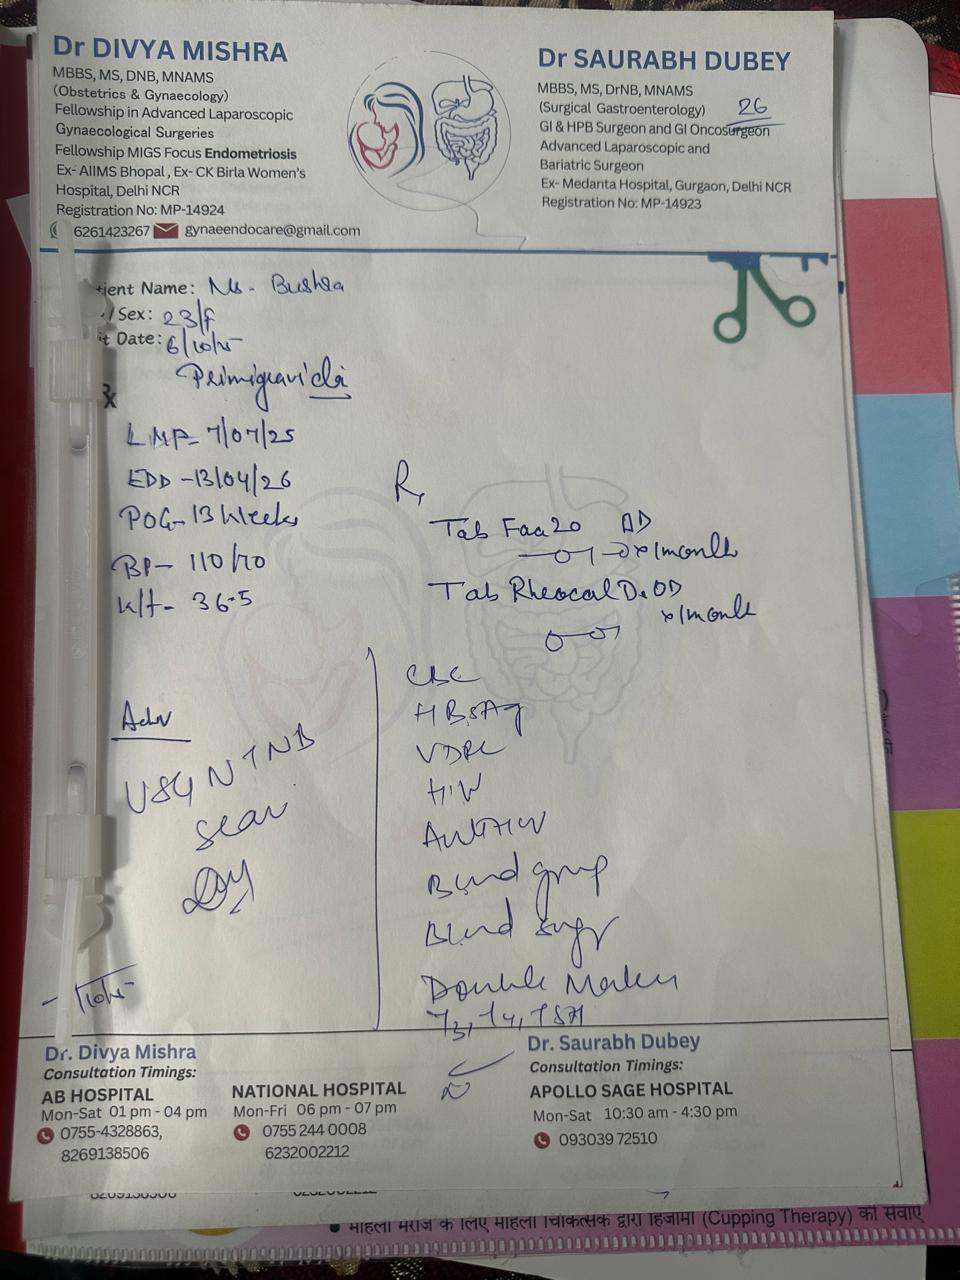 Dr DIVYA MISHRA
MBBS, MS, DNB, MNAMS
(Obstetrics & Gynaecology)
Fellowship in Advanced Laparoscopic
Gynaecological Surgeries
Fellowship MIGS Focus Endometriosis
Ex- AIIMS Bhopal , Ex- CK Birla Women's
Hospital, Delhi NCR
Registration No: MP-14924
6261423267 gynaeendocare@gmail.com
Dr SAURABH DUBEY
MBBS, MS, DrNB, MNAMS
(Surgical Gastroenterology)
26
GI & HPB Surgeon and GI Oncosurgeon
Advanced Laparoscopic and
Bariatric Surgeon
Ex- Medanta Hospital, Gurgaon, Delhi NCR
Registration No: MP-14923
tient Name: Ms - Bushra
/ Sex: 23/f
it Date: 6/10/25
Primigravida
LMP- 7/07/25
EDD - 13/04/26
POG- 13 Weeks
BP- 110/70
Wt- 36.5
Adv
USG NTNB
Scan
Rx
Tab Faa20 OD
x 1month
Tab Rheocal D. OD
x 1month
CBC
HBsAg
VDRL
HIV
Anti HCV
Blood group
Blood sugar
Double Marker
T3, T4, TSH
Dr. Divya Mishra
Consultation Timings:
AB HOSPITAL
Mon-Sat 01 pm - 04 pm
0755-4328863,
8269138506
NATIONAL HOSPITAL
Mon-Fri 06 pm - 07 pm
0755 244 0008
6232002212
Dr. Saurabh Dubey
Consultation Timings:
APOLLO SAGE HOSPITAL
Mon-Sat 10:30 am - 4:30 pm
093039 72510
• महिला मरीज के लिए महिला चिकित्सक द्वारा हिजामा (Cupping Therapy) की सेवाएं